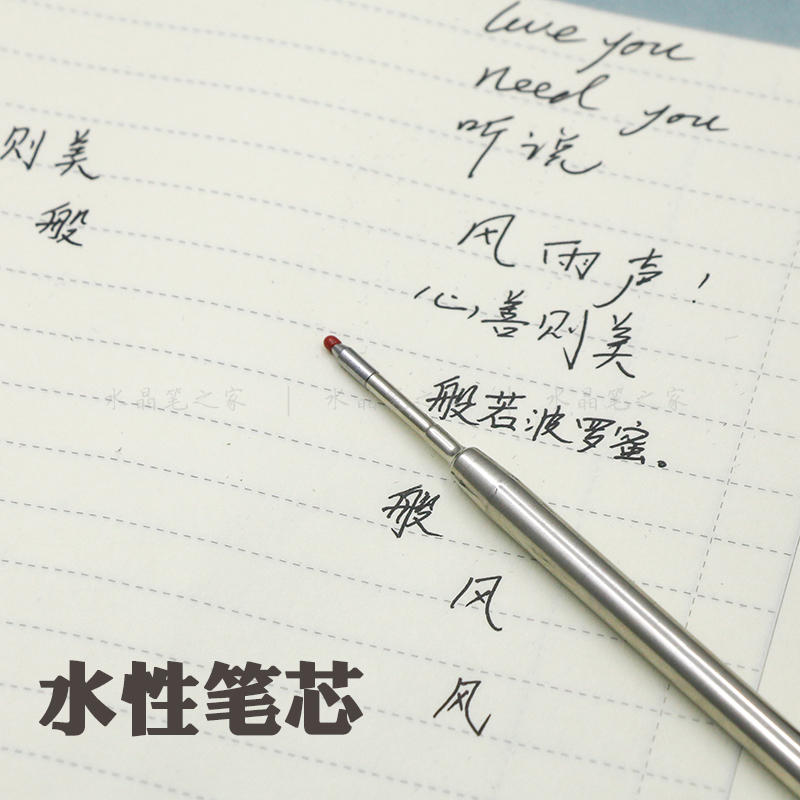 love you
need you
听说
则美
般
风雨声!
心善则美
水晶笔之家 | 水晶
水晶笔之家
般若波罗蜜。
般
风
风
水性笔芯